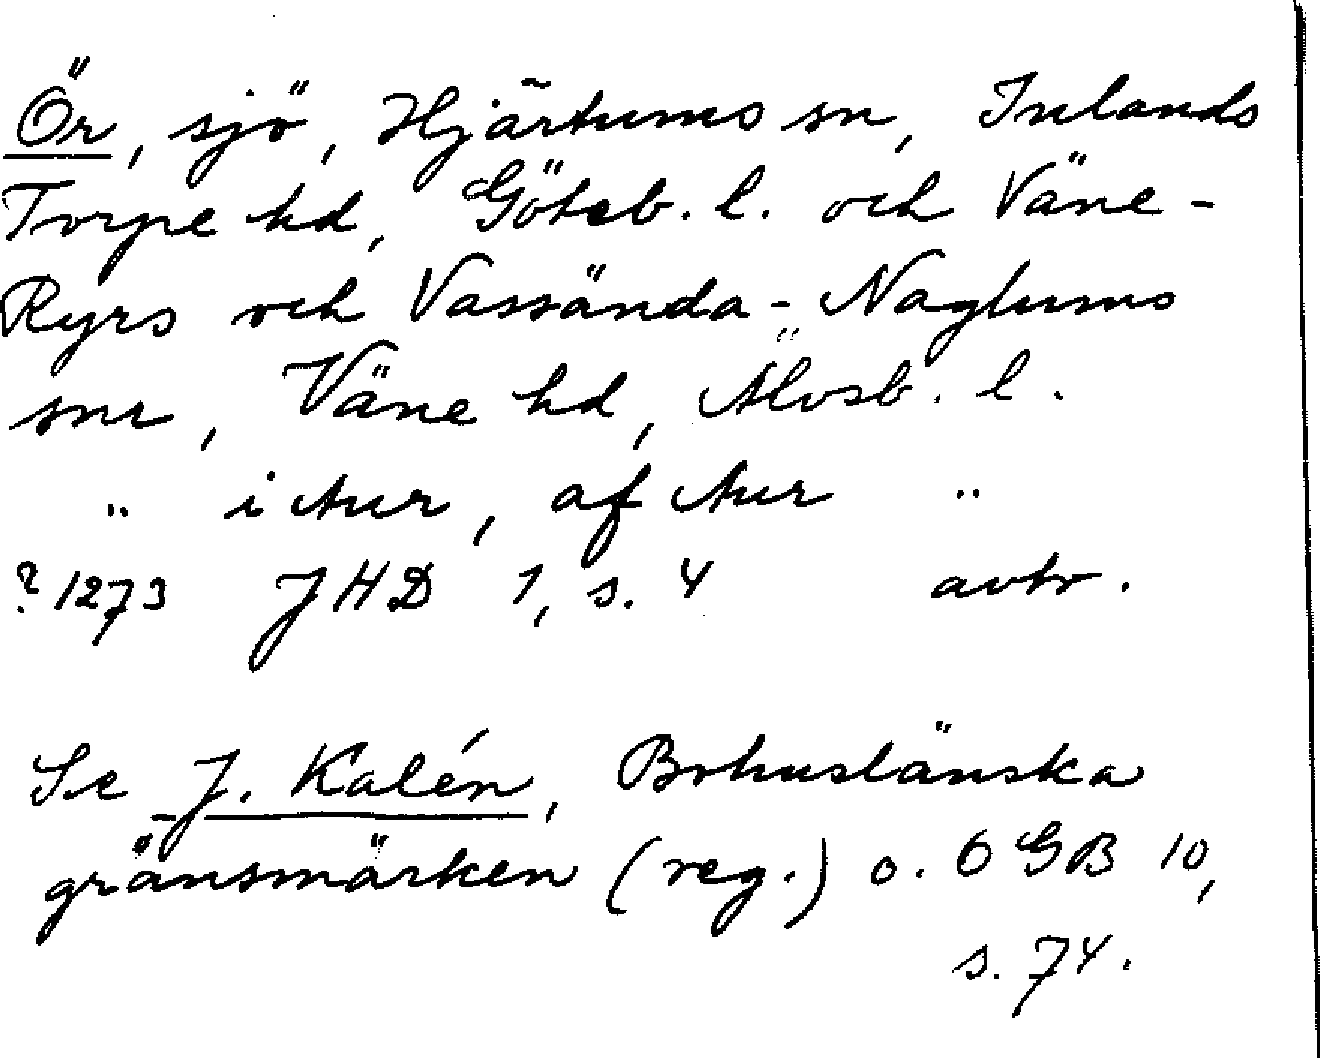 Ör, sjö, Hjärtums sn, Inlands
Torpe hd, Göteb. l. och Väne-
Ryrs och Vassända-Naglums
snr, Väne hd, Älvsb. l.
" i Aur, af Aur "
? 1273 JHD 1, s. 4 avtr.
Se J. Kalén, Bohuslänska
gränsmärken (reg.) o. OGB 10,
s. 74.